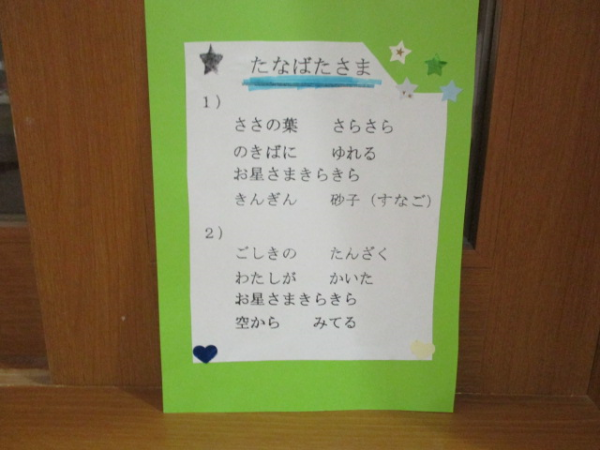 たなばたさま
1)
ささの葉 さらさら
のきばに ゆれる
お星さまきらきら
きんぎん 砂子(すなご)
2)
ごしきの たんざく
わたしが かいた
お星さまきらきら
空から みてる